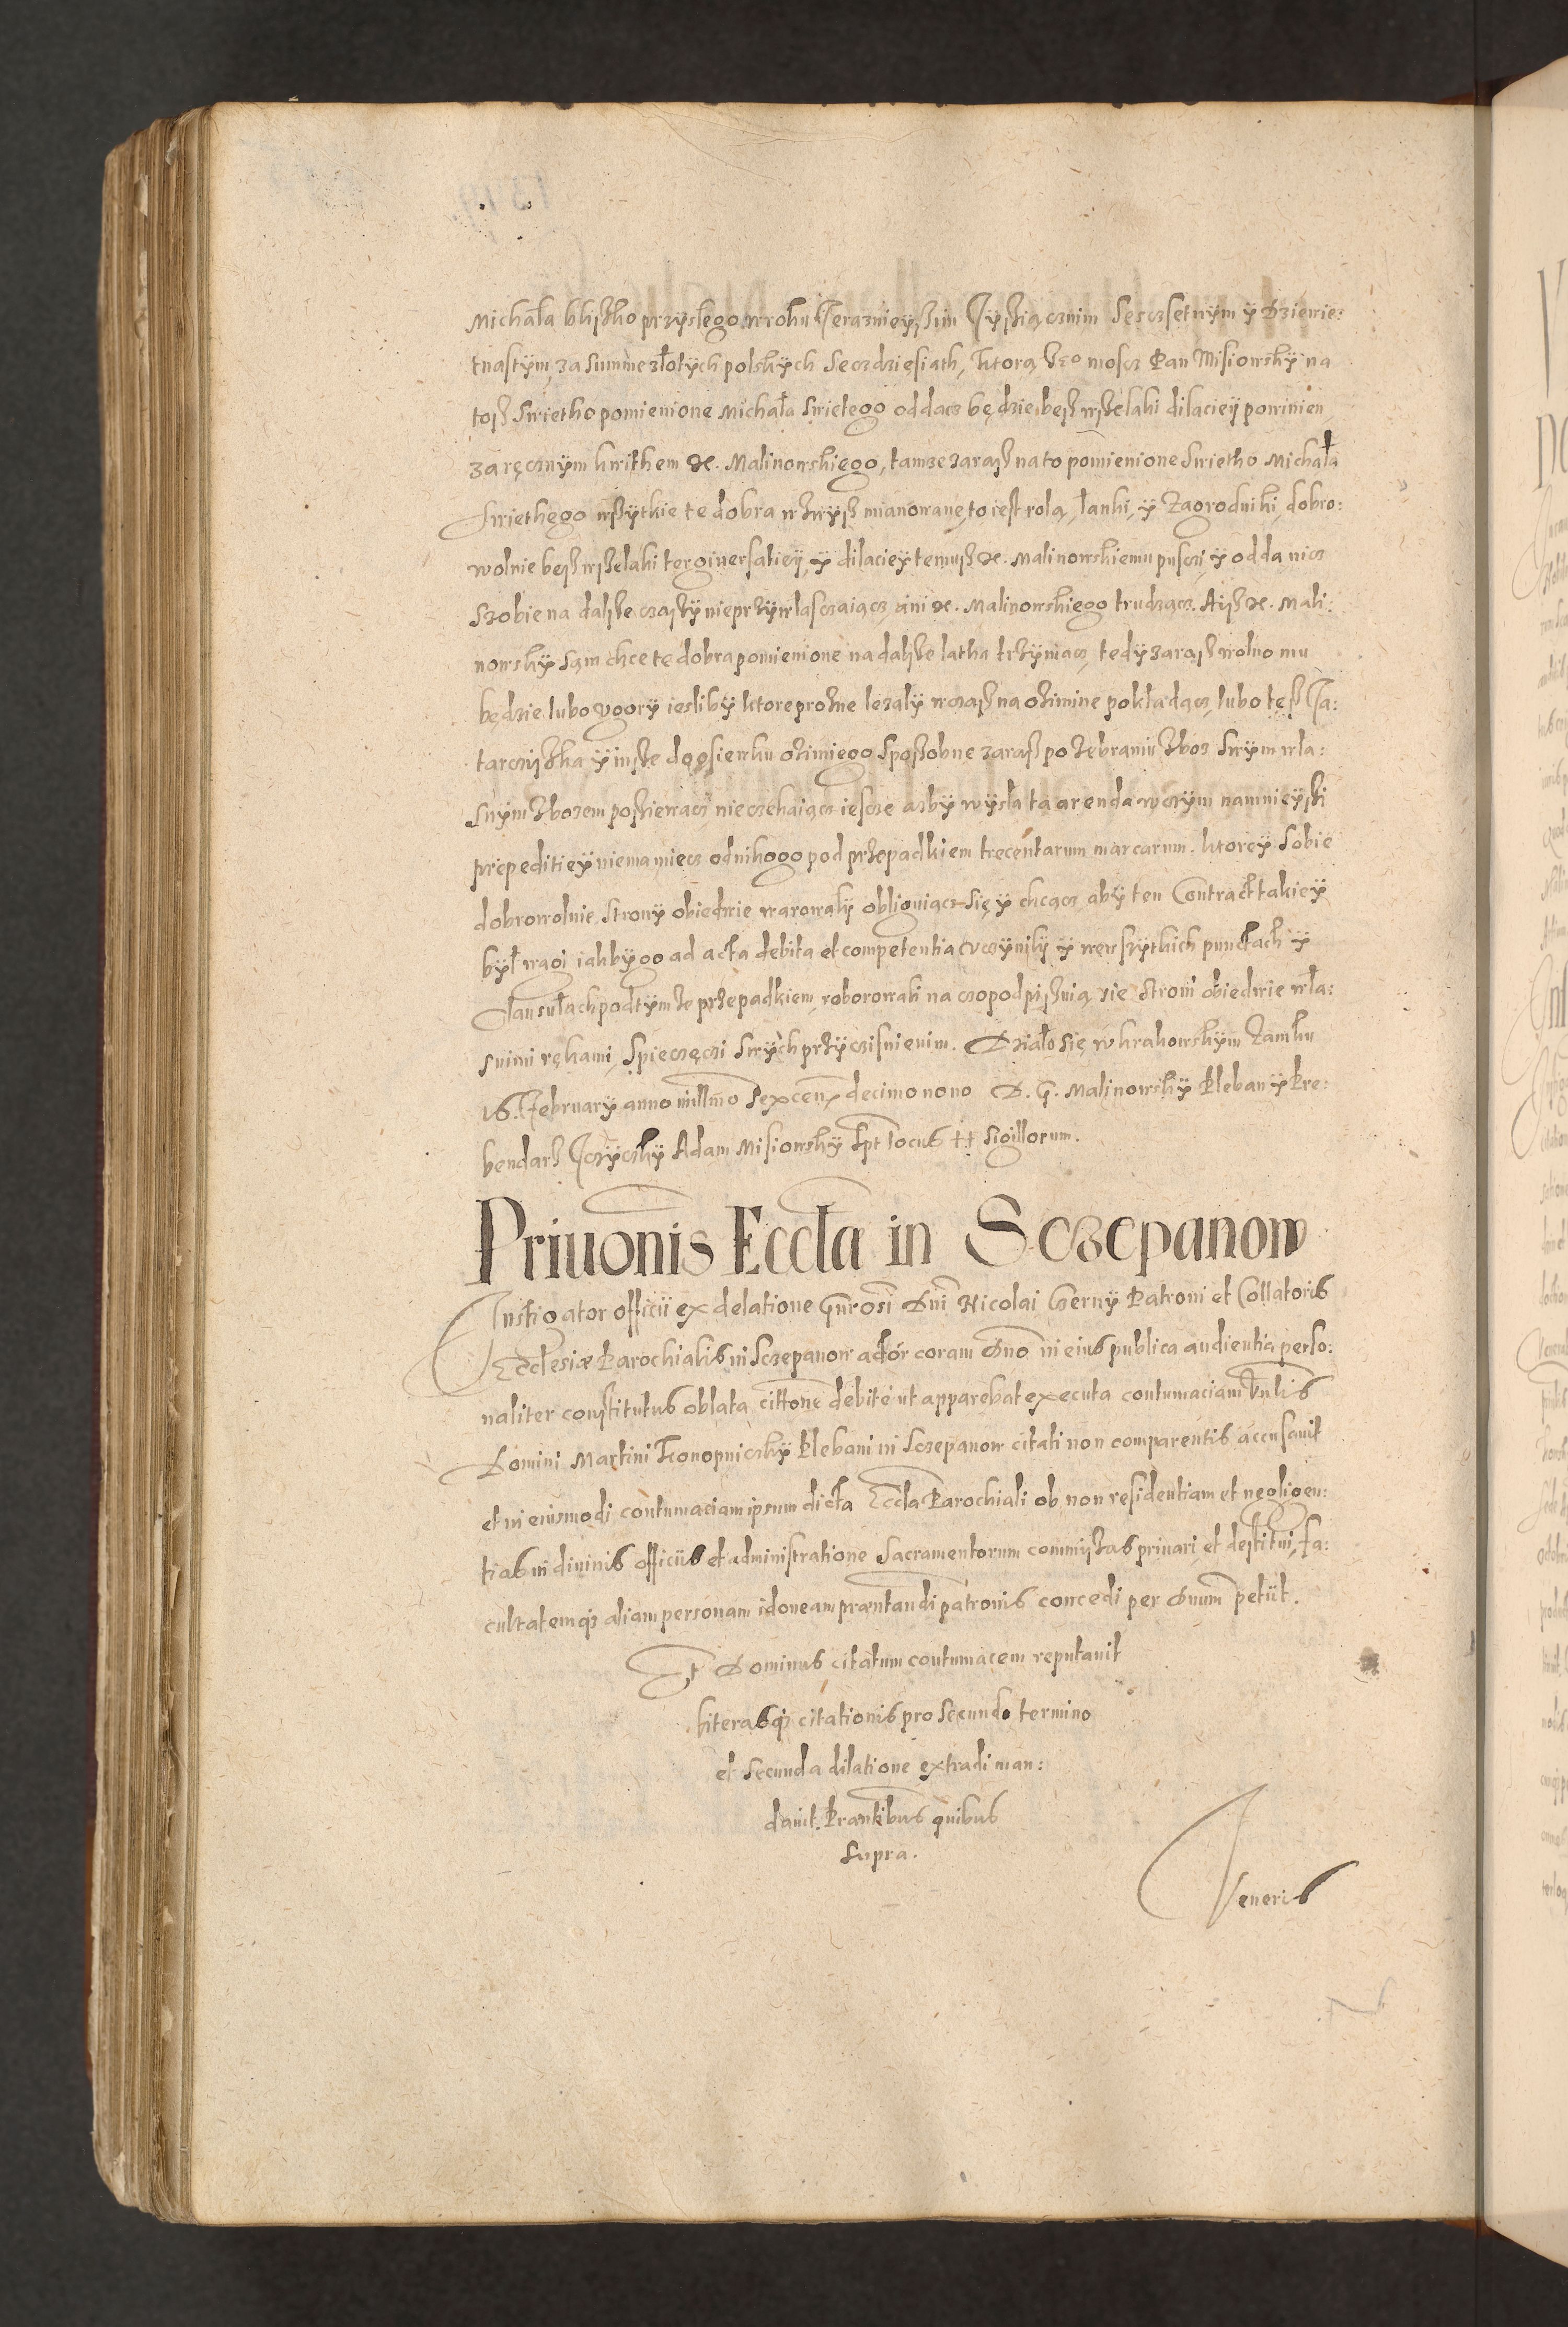 Michała bliszko przyslego w roku Teraznieyszim Tysziącznim Sesczsetnym y Dziewie:
tnastym, za Summe złotych polskych Seczdziesiath, Ktorą Jeo moscz Pan Misiowsky na
tosz Swietho pomienione Michała Swietego oddacz będzie besz wszelaki dilaciey powinien
za ręcznym kwithem X. Malinowskiego, tamze zarasz na to pomienione Swietho Michała
Swiethego wszytkie te dobra wzwysz mianowane, to iest rolą, łanki, y Zagrodniki, dobro:
wolnie besz wszelaki tergiuersatiey, y dilaciey temusz X. Malinowskiemu pusczi, y odda, nicz
Szobie na dalsze czaszy nieprzywlasczaiącz, ani X. Malinowskiego trudzącz. Aisz X. Mali:
nowsky Sąm chce te dobra pomienione na dalsze latha trzymacz, tedy zarąsz wolno mu
będzie lubo vgory iesliby ktore prozne lezaly wczasz na ozimine pokładącz, lubo tesz Ta:
tarcziszka y insze do osiewku ozimiego Sposzobne zarasz po zebraniu zboz Swym wla:
snym zbozem poszierracz, nieczekaiącz iescze azby wysła ta arenda w czym namnieyszi
prepeditiey niema miecz od nikogo pod przepadkiem trecentarum marcarum. Ktorey Sobie
dobrowolnie Strony obiedwie warowały obliguiącz się y chcącz, aby ten Contract takiey
był wagi iakby go ad acta debita et competentia vczynily y wewszytkich punctach y
Clausułach pod tymze przepadkiem, roborowali na czo podpiszuią sie Stroni obiedwie wła:
snimi rękami, Spieczęczi Swych przycziśnienim. Działo się w krakowskym Zamku
16. February anno millmo Sexcent decimo nono D. G. Malinowsky Pleban y Pre:
bendarz Iczyczky Adam Misiowsky Spt locus ++ Sigillorum.
Priuonis Eccla in Sczepanow
Instigator officii ex delatione Gnrosi Dni Nicolai Gerny Patroni et Collatoris
Ecclesiæ Parochialis in Sczepanow actór coram Dno in eius publica audientia perso:
naliter constitutus oblata cittone debite ut apparebat executa contumaciam Vnlis
Domini Martini Konopniczky Plebani in Sczepanow citati non comparentis accusauit
et in eiusmodi contumaciam ipsum dicta Eccla Parochiali ob non residentiam et negligen:
tias in diuinis officiis et administratione Sacramentorum commissas priuari et destitui, fa:
cultatemq; aliam personam idoneam præntandi patronis concedi per Dnum petiit.
Et Dominus citatum contumacem reputauit
literasq; citationis pro Secundo termino
et Secunda dilatione extradi man:
dauit. Præntibus quibus
Supra.
Veneris